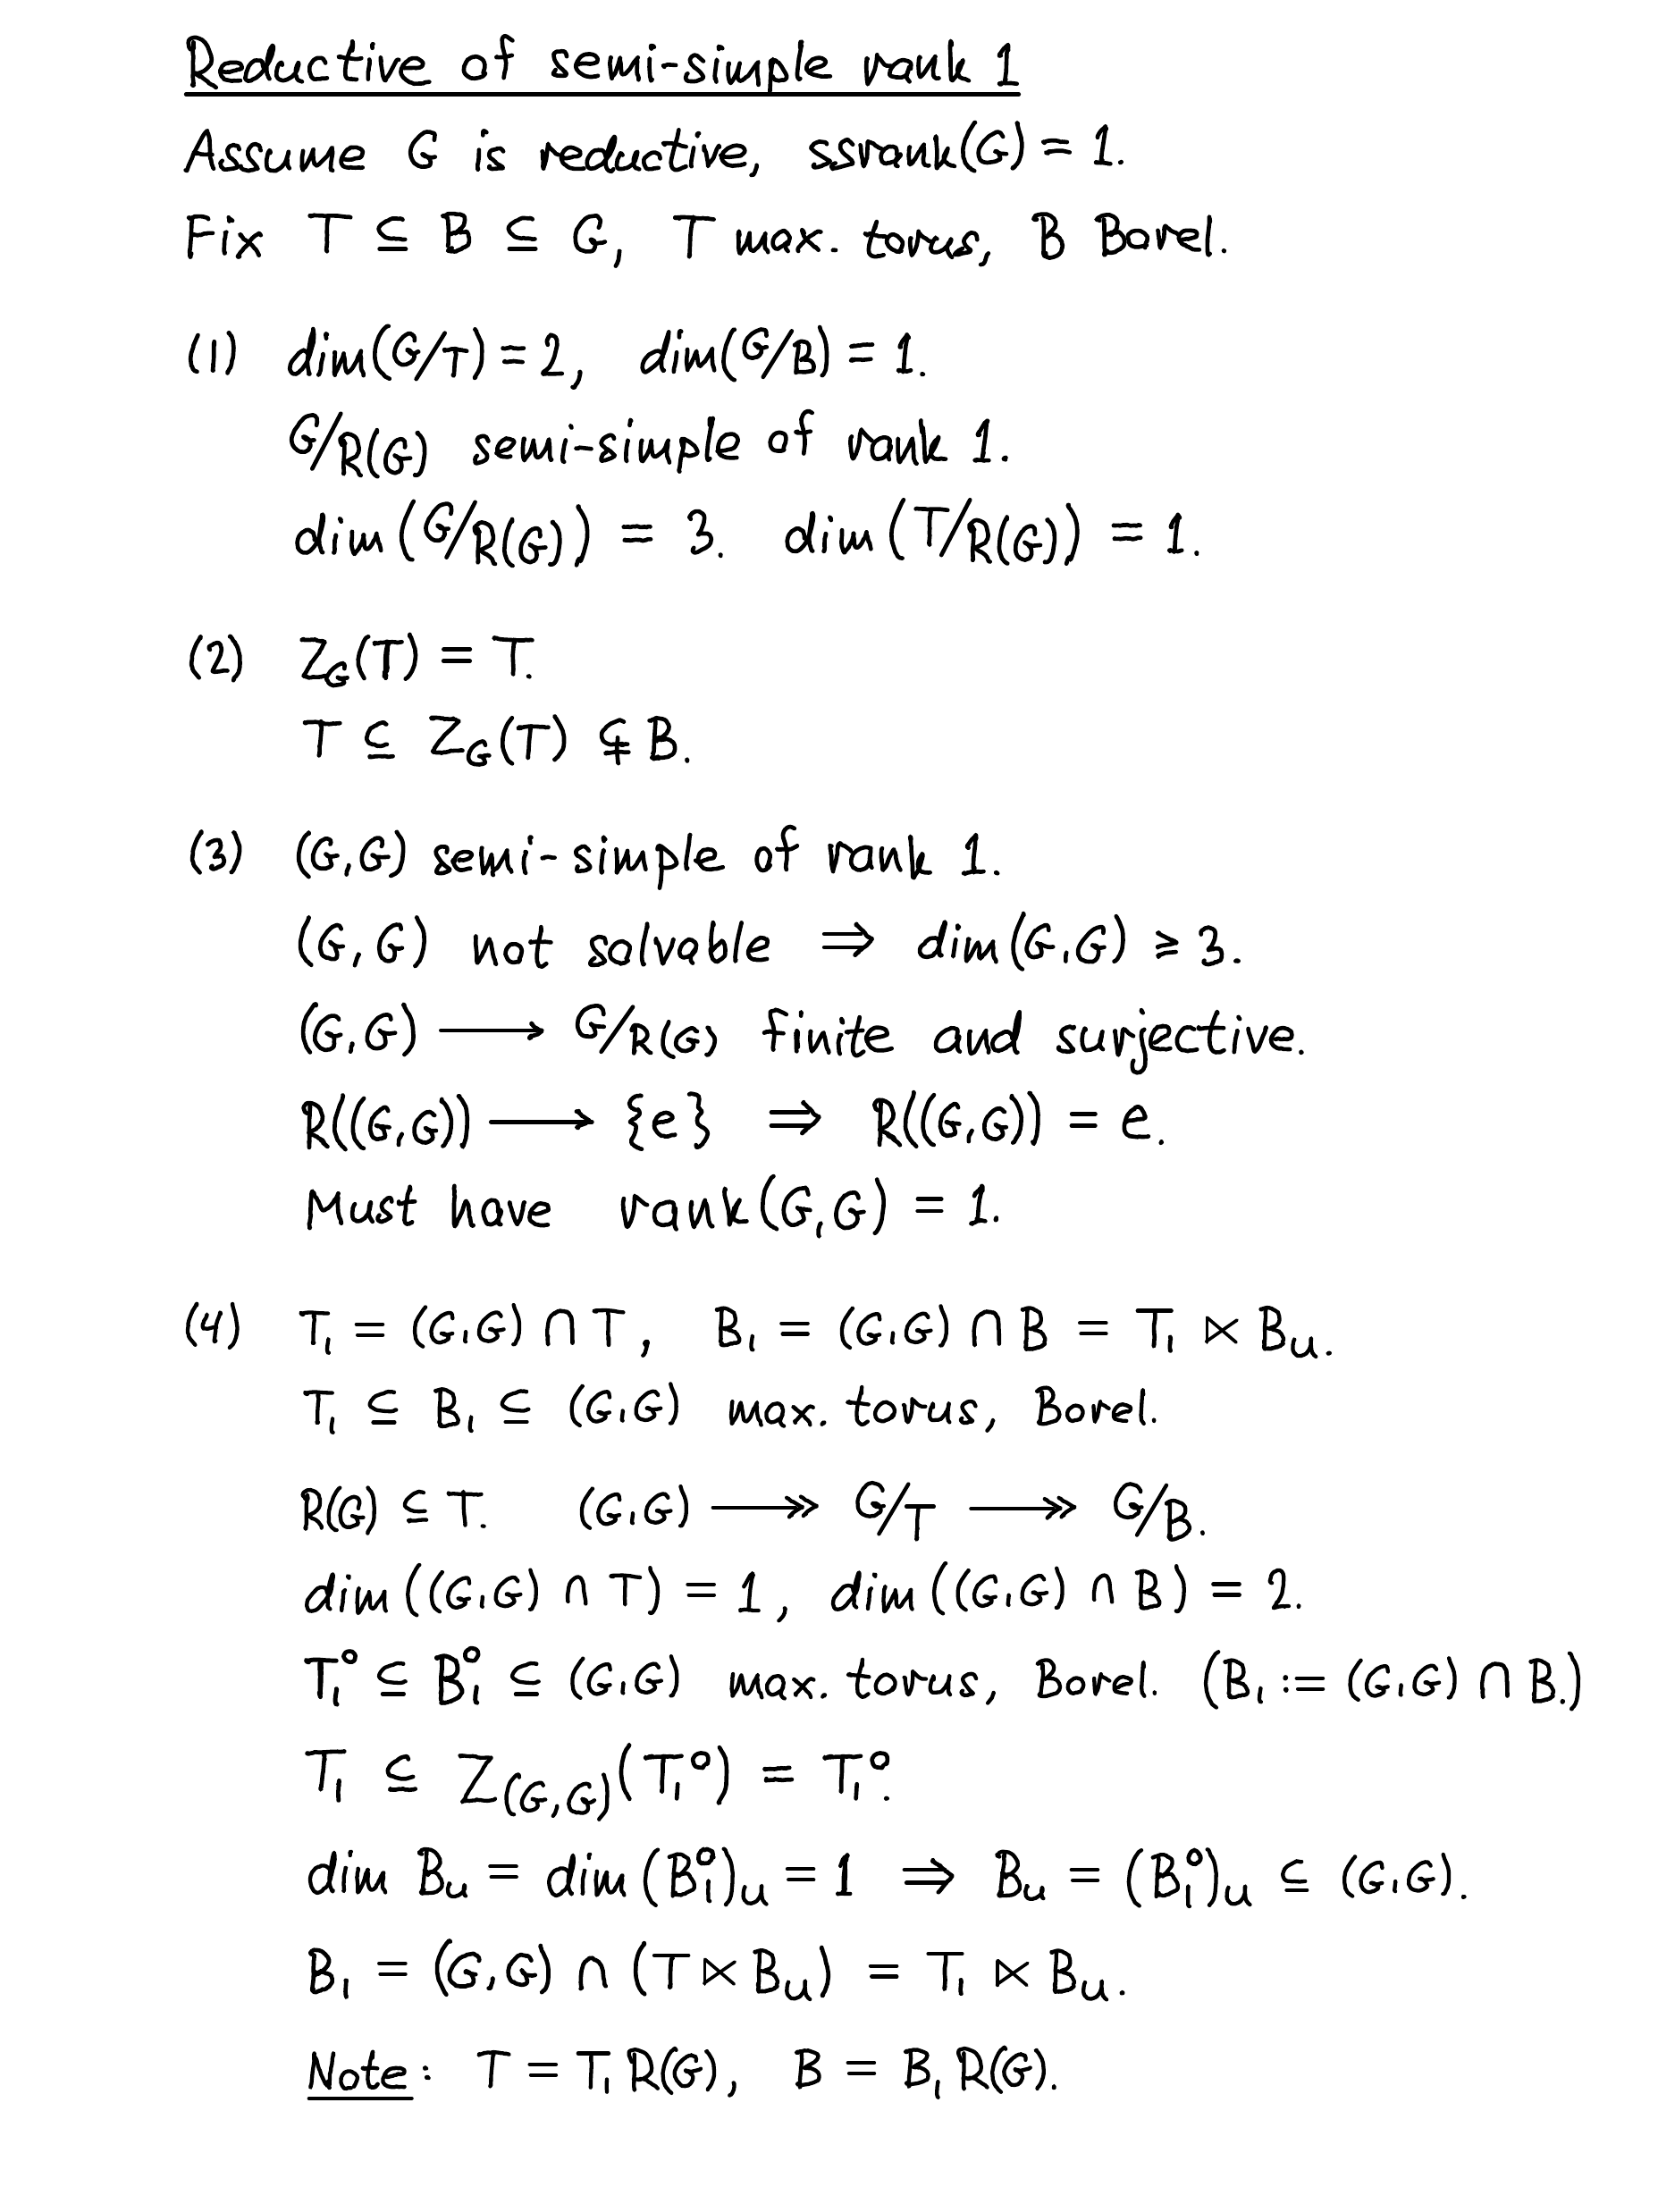 Reductive of semi-simple rank 1
Assume G is reductive, ssrank(G) = 1.
Fix T ⊆ B ⊆ G, T max. torus, B Borel.
(1) dim(G/T) = 2, dim(G/B) = 1.
G/R(G) semi-simple of rank 1.
dim(G/R(G)) = 3. dim(T/R(G)) = 1.
(2) Z_G(T) = T.
T ⊆ Z_G(T) ⊊ B.
(3) (G,G) semi-simple of rank 1.
(G,G) not solvable ⇒ dim(G,G) ≥ 3.
(G,G) ⟶ G/R(G) finite and surjective.
R((G,G)) ⟶ {e} ⇒ R((G,G)) = e.
Must have rank(G,G) = 1.
(4) T₁ = (G,G) ∩ T, B₁ = (G,G) ∩ B = T₁ ⋉ B_u.
T₁ ⊆ B₁ ⊆ (G,G) max. torus, Borel.
R(G) ⊆ T. (G,G) ↠ G/T ↠ G/B.
dim((G,G) ∩ T) = 1, dim((G,G) ∩ B) = 2.
T₁° ⊆ B₁° ⊆ (G,G) max. torus, Borel. (B₁ := (G,G) ∩ B.)
T₁ ⊆ Z_(G,G)(T₁°) = T₁°.
dim B_u = dim(B₁°)_u = 1 ⇒ B_u = (B₁°)_u ⊆ (G,G).
B₁ = (G,G) ∩ (T ⋉ B_u) = T₁ ⋉ B_u.
Note: T = T₁ R(G), B = B₁ R(G).